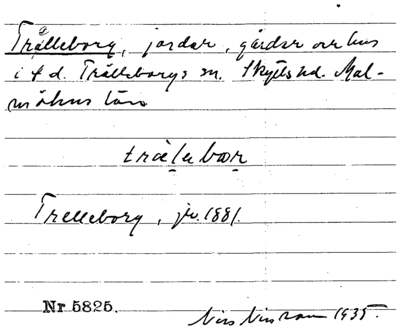 Trålleborg, jordar, gårdar och hus
i f d. Trålleborgs sn. Skytts hd. Mal-
möhus län
Trelleborg, jr. 1881.
Nr 5825.
Nils Nilsson 1935